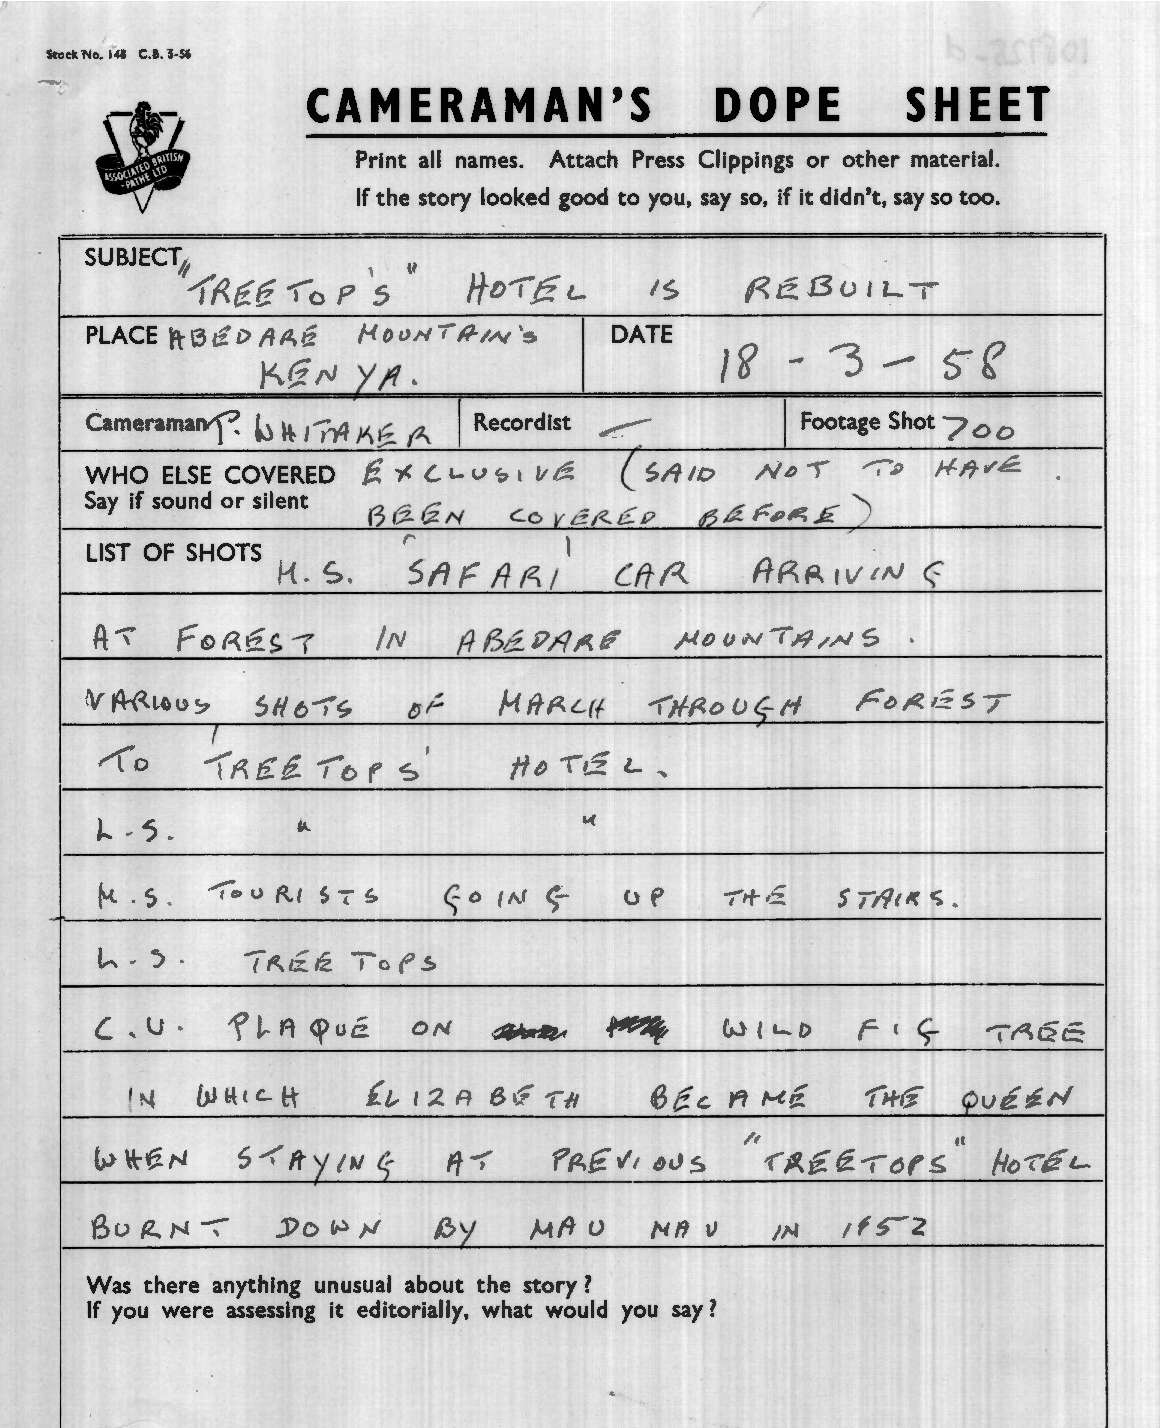 Stock No. 148 C.B. 3-56
CAMERAMAN'S DOPE SHEET
ASSOCIATED BRITISH
-PATHE LTD
Print all names. Attach Press Clippings or other material.
If the story looked good to you, say so, if it didn't, say so too.
SUBJECT "TREE TOP'S" HOTEL IS REBUILT
PLACE ABEDARE MOUNTAIN'S
KENYA.
DATE 18 - 3 - 58
Cameraman P. WHITAKER Recordist — Footage Shot 700
WHO ELSE COVERED EXCLUSIVE (SAID NOT TO HAVE
Say if sound or silent BEEN COVERED BEFORE)
LIST OF SHOTS M.S. 'SAFARI' CAR ARRIVING
AT FOREST IN ABEDARE MOUNTAINS.
VARIOUS SHOTS OF MARCH THROUGH FOREST
TO 'TREE TOPS' HOTEL.
L.S. " "
M.S. TOURISTS GOING UP THE STAIRS.
L.S. TREE TOPS
C.U. PLAQUE ON WILD FIG TREE
IN WHICH ELIZABETH BECAME THE QUEEN
WHEN STAYING AT PREVIOUS "TREETOPS" HOTEL
BURNT DOWN BY MAU MAU IN 1952
Was there anything unusual about the story?
If you were assessing it editorially, what would you say?